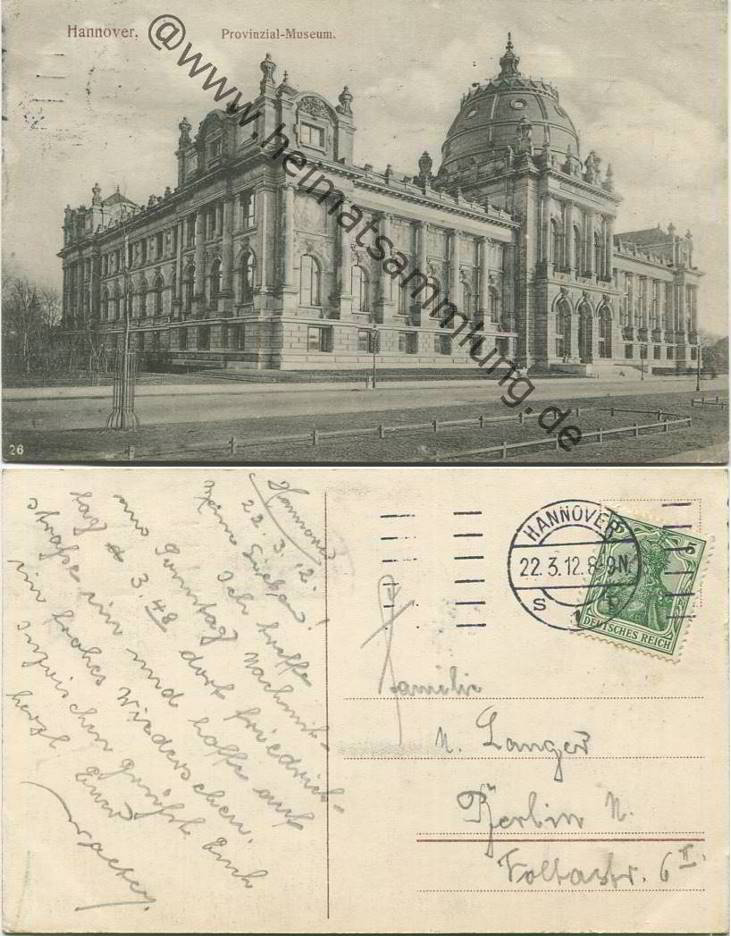 Hannover. Provinzial-Museum.
@www.heimatsammlung.de
26
Hannover
22.3.12.
Meine Lieben!
Ich treffe
am Sonntag Nachmit-
tag 3.48 dort Friedrich-
straße ein und hoffe auf
ein frohes Wiedersehen.
Inzwischen grüßt Euch
herzl. Euer
HANNOVER
22.3.12.8-9N.
S
5
DEUTSCHES REICH
Familie
N. Langer
Berlin N.
Voltastr. 6 II.